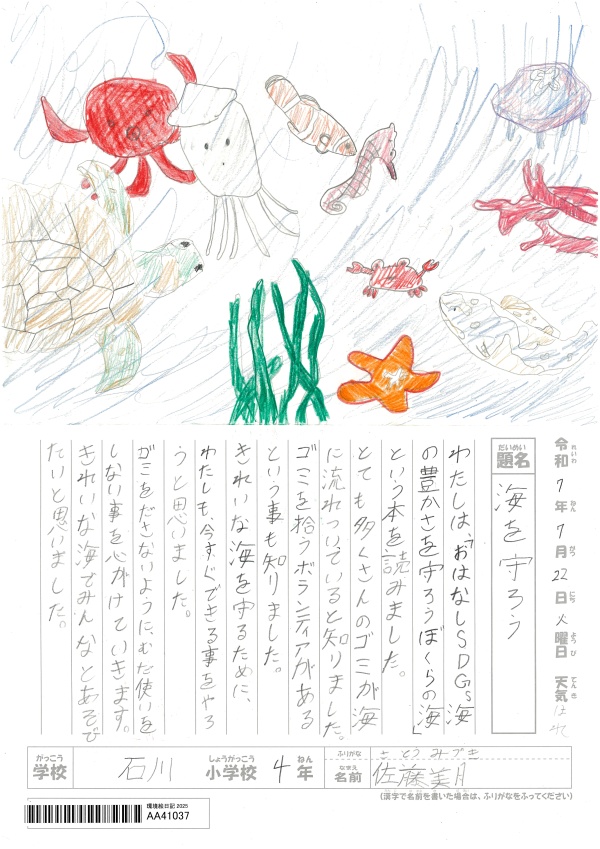 令和7年7月22日火曜日 天気 はれ
れいわ ねん がつ にち ようび てんき
だいめい
題名 海を守ろう
わたしは、「おはなしSDGs海
の豊かさを守ろうぼくらの海」
という本を読みました。
とても多くさんのゴミが海
に流れついていると知りました。
ゴミを拾うボランティアがある
という事も知りました。
きれいな海を守るために、
わたしも、今すぐできる事をやろ
うと思いました。
ゴミをださないように、むだ使いを
しない事を心がけていきます。
きれいな海でみんなとあそび
たいと思いました。
がっこう しょうがっこう ねん
学校 石川 小学校 4年
ふりがな さとうみづき
なまえ
名前 佐藤美月
(漢字で名前を書いた場合は、ふりがなをふってください)
環境絵日記 2025
AA41037